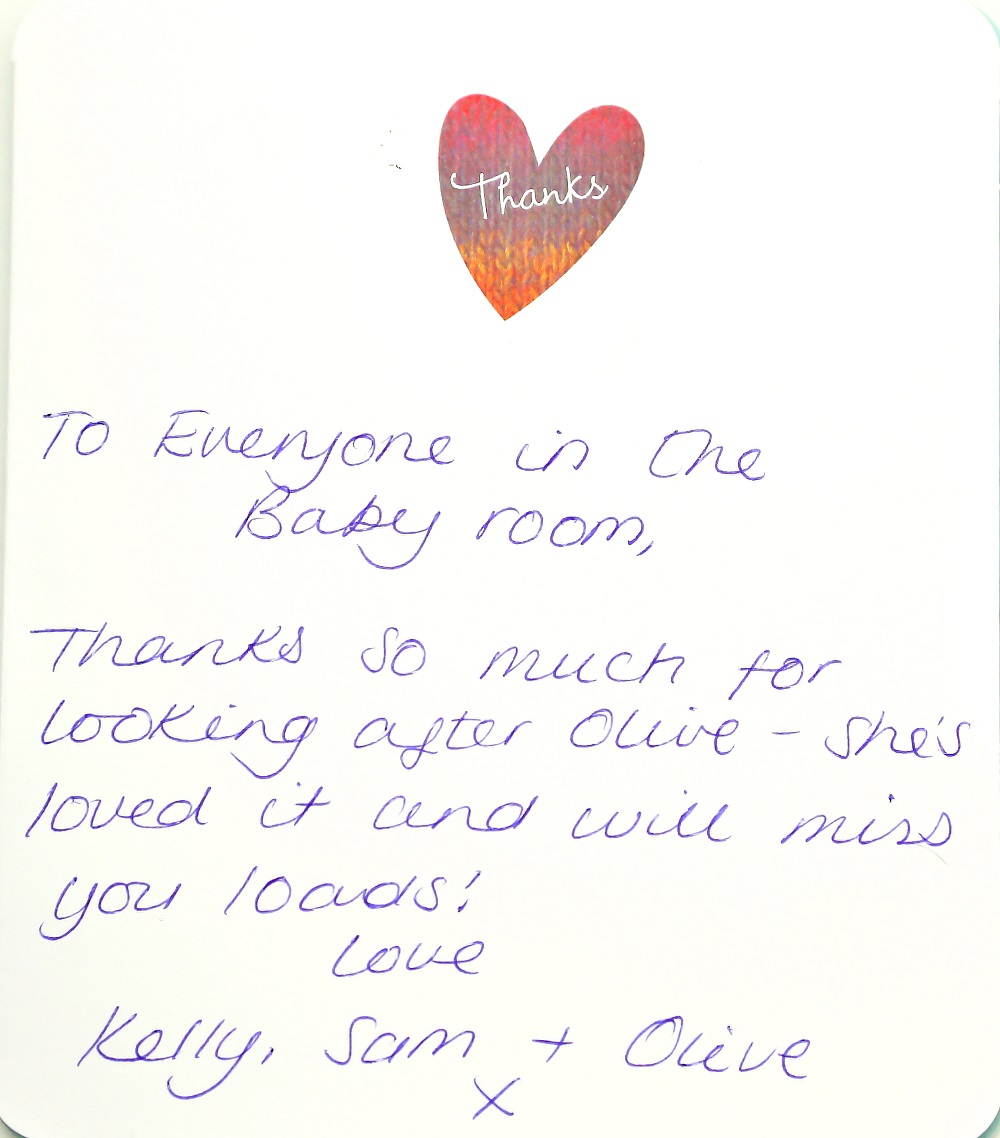 Thanks
To Everyone in the
Baby room,
Thanks so much for
looking after Olive - she's
loved it and will miss
you loads!
Love
Kelly, Sam + Olive
x